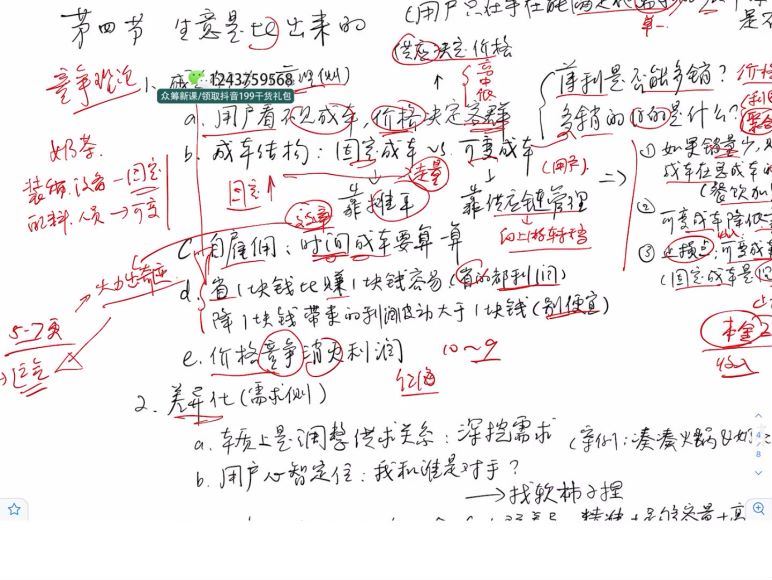 第四节 生意是比出来的
供应决定价格
高
中
低
竞争理论
1243759568
众筹新课/领取抖音199干货礼包
薄利是否能多销?
多销的目的是什么?
a. 用户看不见成本,价格决定客群
b. 成本结构: 固定成本 VS. 可变成本
(用户)
走量
固定↑
奶茶
装修.设备—固定
配料.人员→可变
靠推平
靠供应链管理
向上游要利益
c. 自雇佣: 时间成本要算一算
d. 省1块钱比赚1块钱容易(省的都利润)
降1块钱带来的利润波动大于1块钱(别便宜)
e. 价格竞争消灭利润
10~9
红海
5-7页
① 如果销量少,
成本在总成本的
②
可变成本降低
③
可变成
固定成本是
本金
收入
2. 差异化(需求侧)
a. 本质上是调整供求关系: 深挖需求 (案例:凑凑火锅&奶
b. 用户心智定位: 我和谁是对手?
→找软柿子捏
4
8